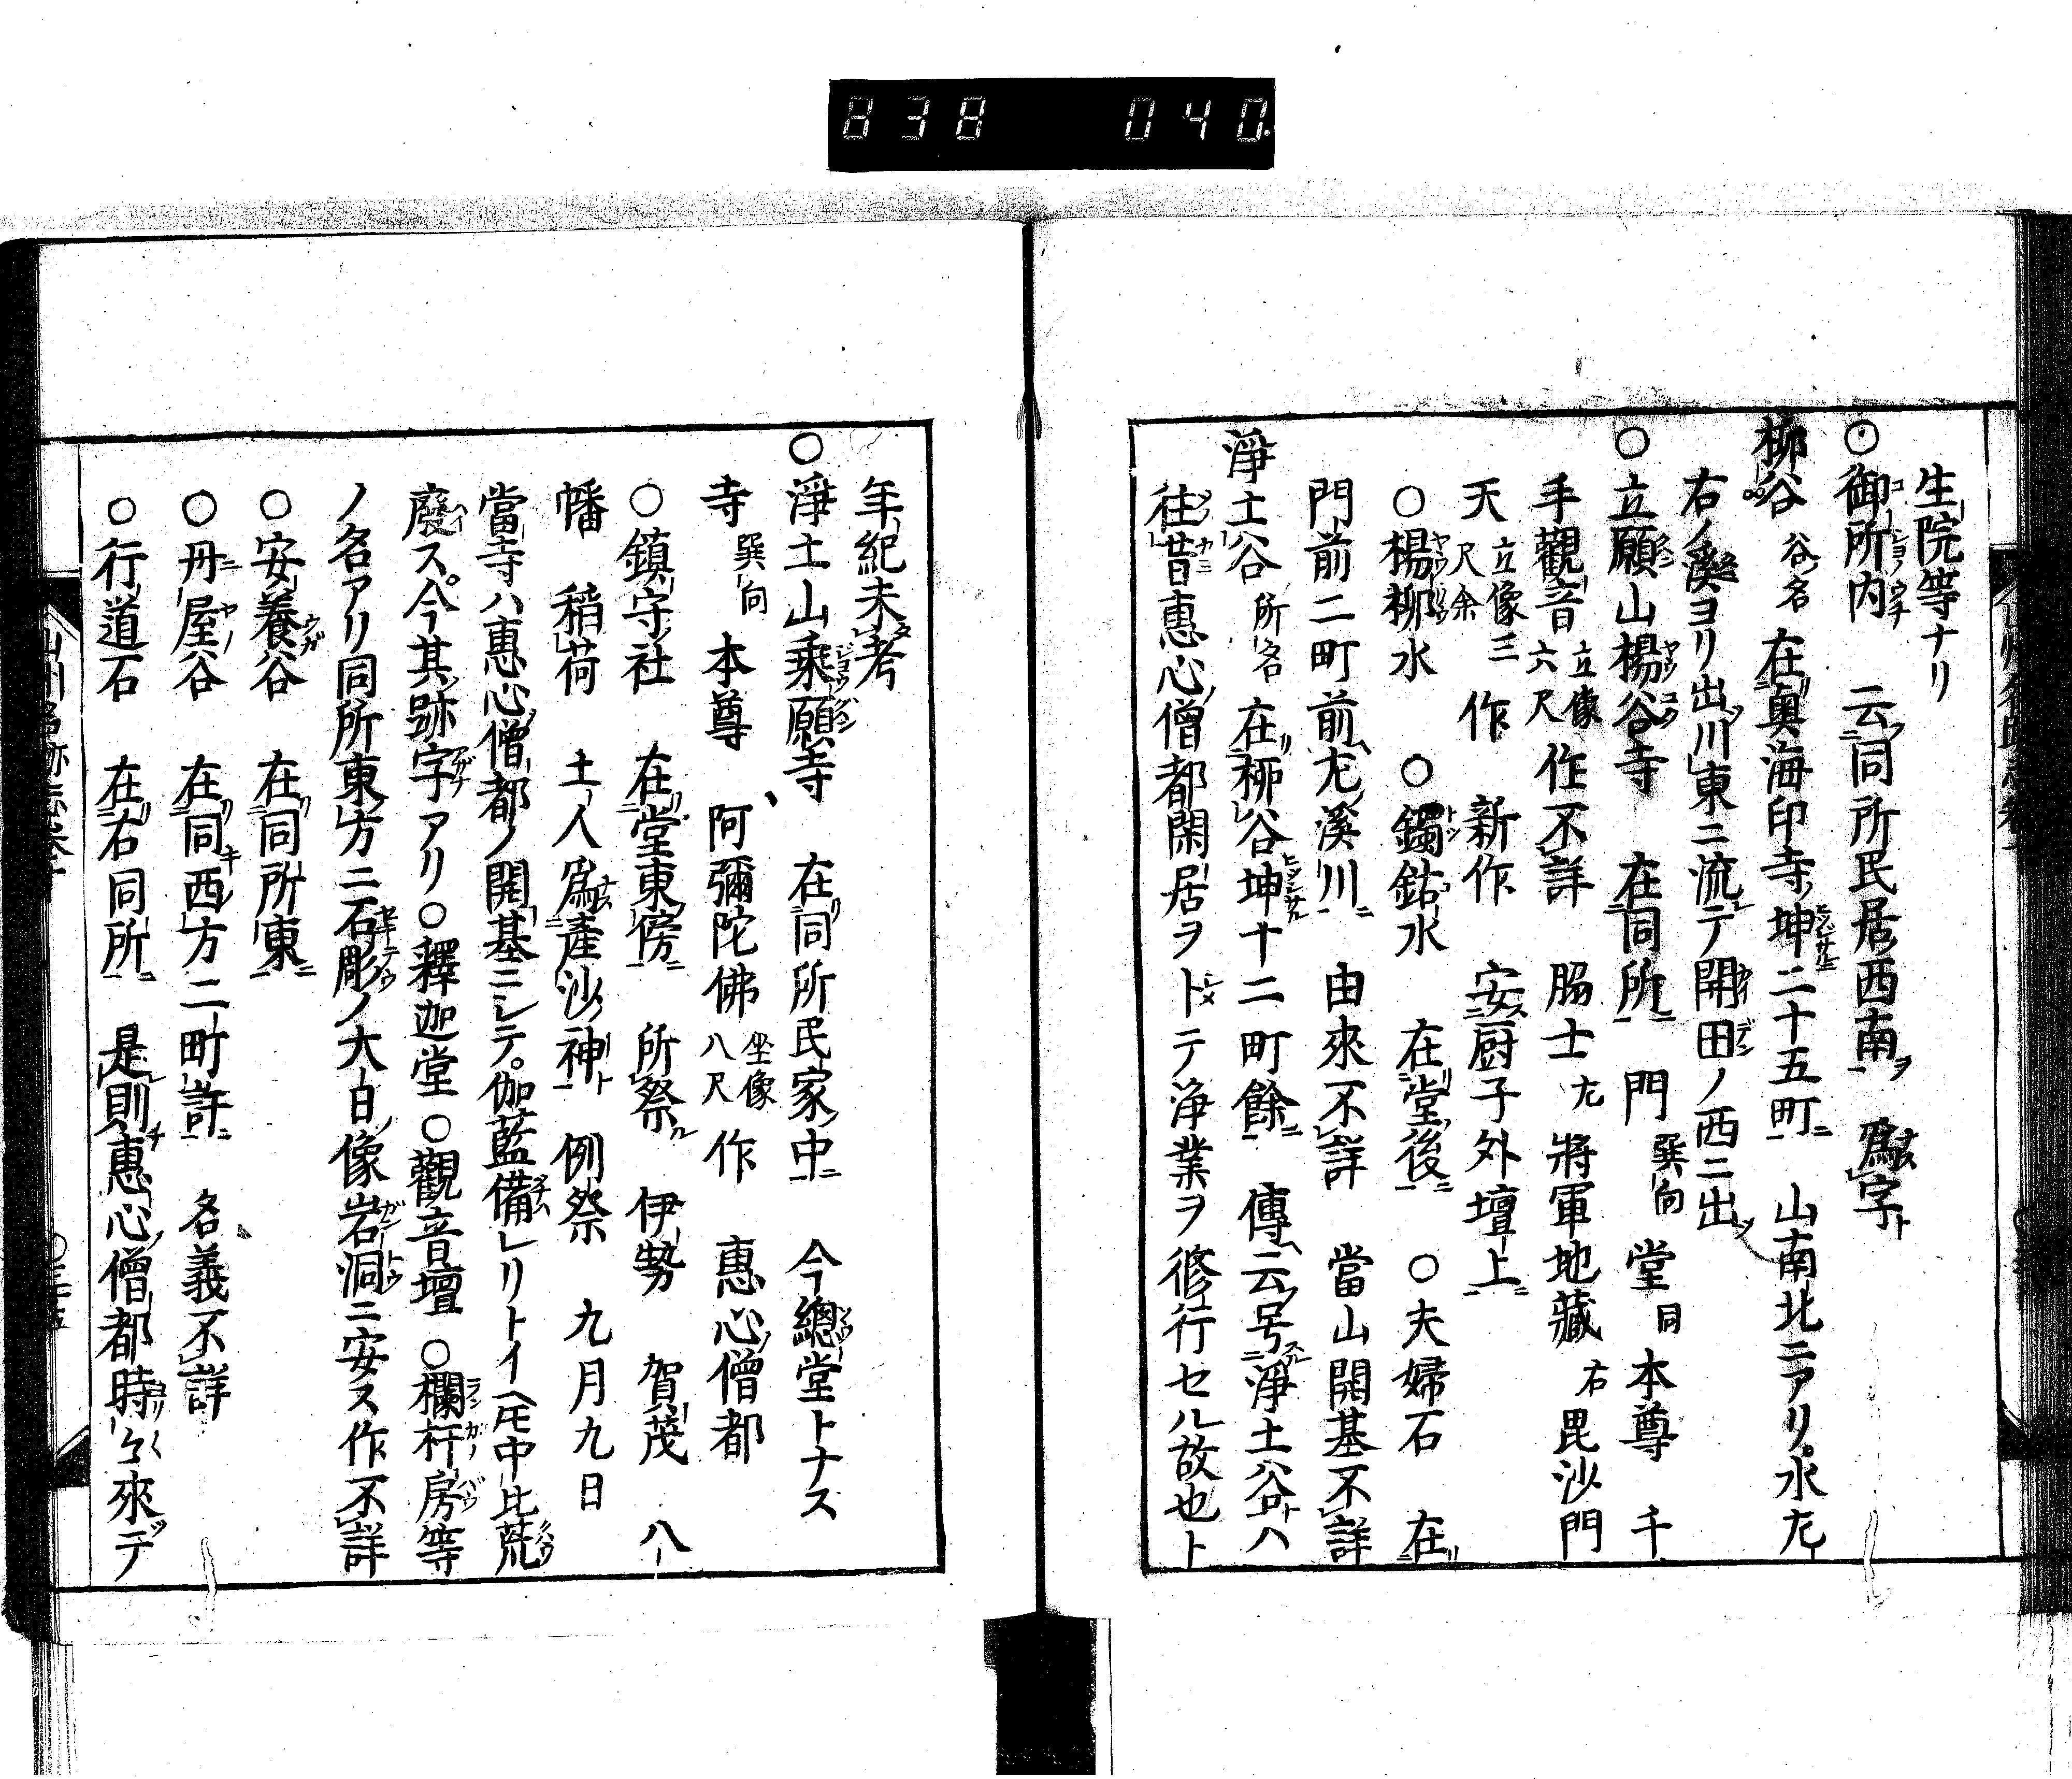 838 040
生院等ナリ
○御所内 云同所民居西南ヲ 爲字ト
柳谷 谷名 在奥海印寺坤二十五町ニ 山南北ニアリ水尢
右ノ溪ヨリ出川東ニ流テ開田ノ西ニ出ツ
○立願山楊谷寺 在同所ニ 門 巽向 堂 同 本尊 千
手觀音 立像六尺 作不詳 脇士 尢 將軍地藏 右 毘沙門
天 立像三尺余 作 新作 安厨子外壇上ニ
○楊柳水 ○鐲鈷水 在堂後ニ ○夫婦石 在
門前二町前尢溪川ニ 由來不詳 當山開基不詳
淨土谷 所名 在柳谷坤十二町餘ニ 傳云号淨土谷トハ
往昔惠心僧都閑居ヲトメテ浄業ヲ修行セル故也ト
年紀未考
○淨土山乗願寺 在同所民家中ニ 今總堂トナス
寺 巽向 本尊 阿彌陀佛 坐像八尺 作 惠心僧都
○鎮守社 在堂東傍ニ 所祭ル 伊勢 賀茂 八
幡 稻荷 土人爲產沙神ト 例祭 九月九日
當寺ハ惠心僧都ノ開基ニシテ伽藍備レリトイヘ𪜈中比荒
廢ス今其跡字アリ○釋迦堂 ○觀音壇 ○欄杆房等
ノ名アリ同所東方ニ石彫ノ大日像岩洞ニ安ス作不詳
○安養谷 在同所東ニ
○丹屋谷 在同西方二町許ニ 名義不詳
○行道石 在右同所ニ 是則惠心僧都時々來デ